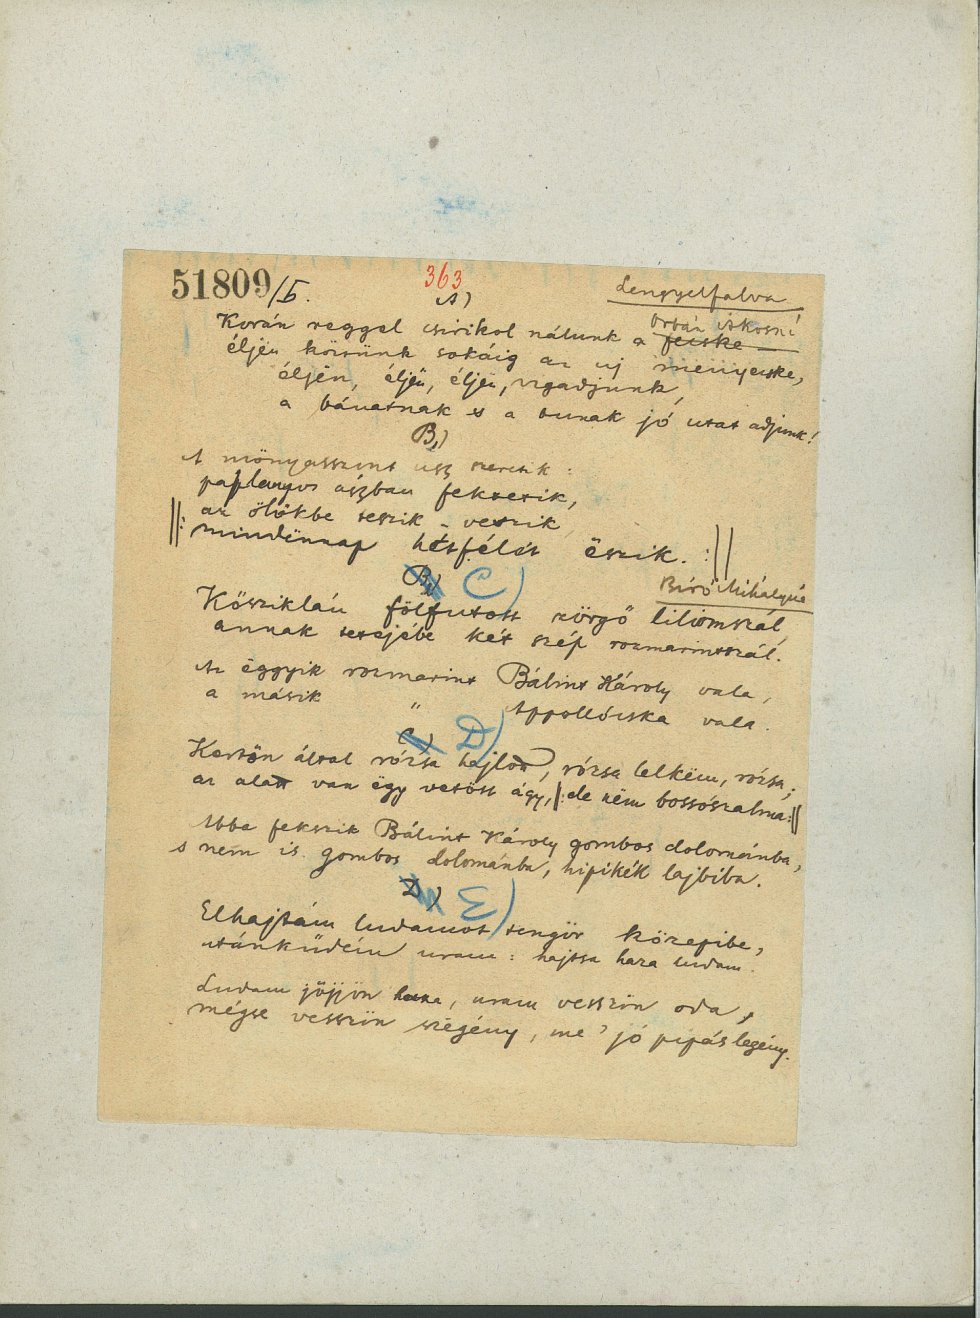 51809/5.
363
Lengyelfalva
A)
Orbán Ákosné
Korán reggel csirikol nálunk a fecske
éljën közzünk sokáig az uj mënyecske,
éljën, éljën, éljën, vigadjunk,
a bánatnak es a bunak jó utat adjunk!
B,)
A mönyasszont ugy szeretik:
paplanyos ágyban fektetik,
az ölökbe teszik-veszik,
||: mindënnap hétfélét ëszik. :||
B,) C)
Bíró Mihályné
Kősziklán fölfutott zörgő liliomszál,
annak tetejébe két szép rozmarintszál.
Az ëggyik rozmarint Bálint Károly vala,
a másik " Appollócska vala.
C) D)
Kertön által rózsa hajlott, rózsa lelkëm, rózsa;
az alatt van ëgy vetött ágy, ||: de nëm bossószalma :||
Abba fekszik Bálint Károly gombos dolománba,
s nem is gombos dolománba, hipikék lajbiba.
D) E)
Elhajtám ludamot tengör közepibe,
utánküdém uram: hajtsa haza ludam.
Ludam jőjjön haza, uram vesszön oda,
mégse vesszön szëgény, me' jó pipás legény.